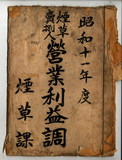 昭和十一年度
煙草賣捌人
營業利益調
煙草課